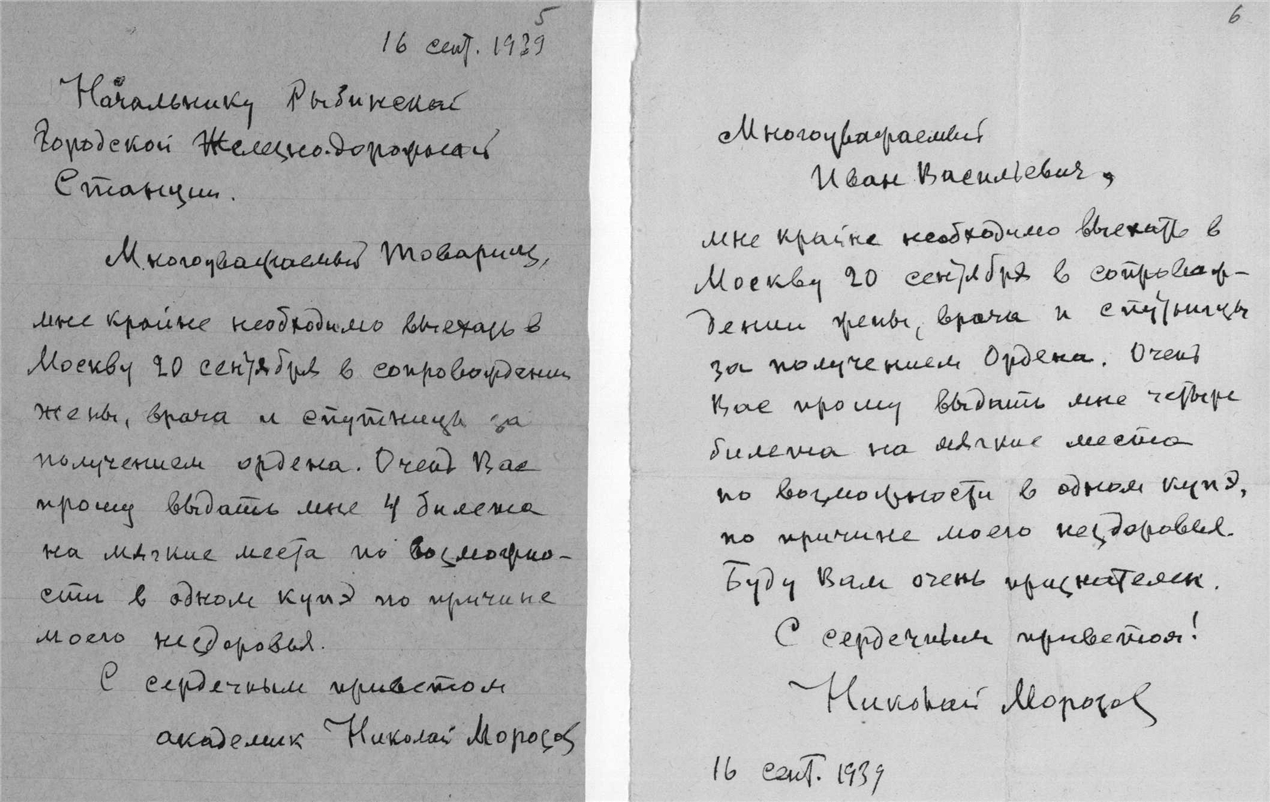 5
16 сент. 1939
Начальнику Рыбинской
Городской Железно-дорожной
Станции.
Многоуважаемый Товарищ,
мне крайне необходимо выехать в
Москву 20 сентября в сопровождении
жены, врача и спутницы за
получением ордена. Очень Вас
прошу выдать мне 4 билета
на мягкие места по возможно-
сти в одном купэ по причине
моего нездоровья.
С сердечным приветом
академик Николай Морозов
6
Многоуважаемый
Иван Васильевич,
мне крайне необходимо выехать в
Москву 20 сентября в сопровож-
дении жены, врача и спутницы
за получением Ордена. Очень
Вас прошу выдать мне четыре
билета на мягкие места
по возможности в одном купэ,
по причине моего нездоровья.
Буду Вам очень признателен.
С сердечным приветом!
Николай Морозов
16 сент. 1939